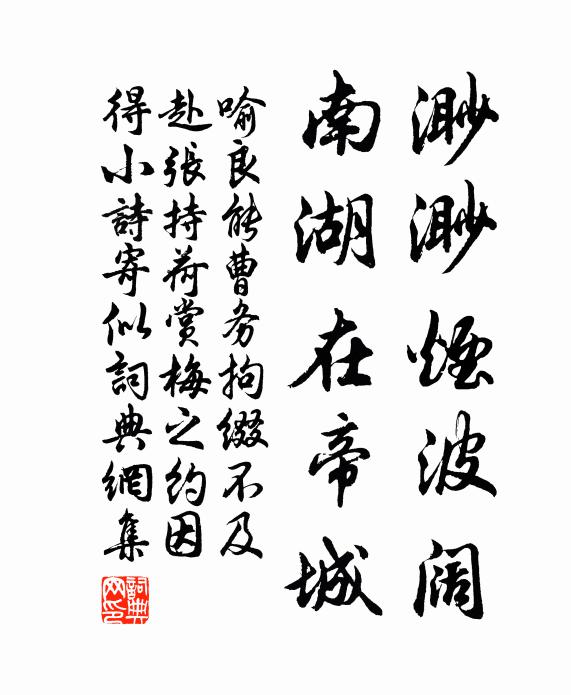 渺渺煙波阔
南湖在帝城
喻良能曹务拘缀不及
赴張持荷赏梅之约因
得小詩寄似詞典網集
詞典網印